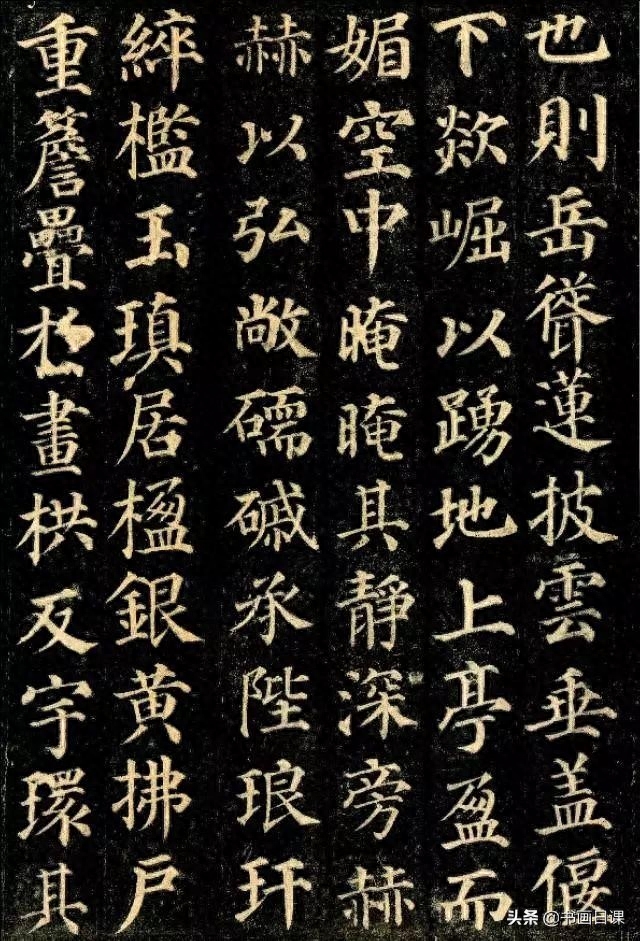 也則岳聳蓮披雲垂盖偃
下欻崛以踴地上亭盈而
媚空中晻晻其靜深旁赫
赫以弘敞礝磩承陛琅玕
綷檻玉瑱居楹銀黄拂戶
重簷疊於畫栱反宇環其
头条 @书画日课